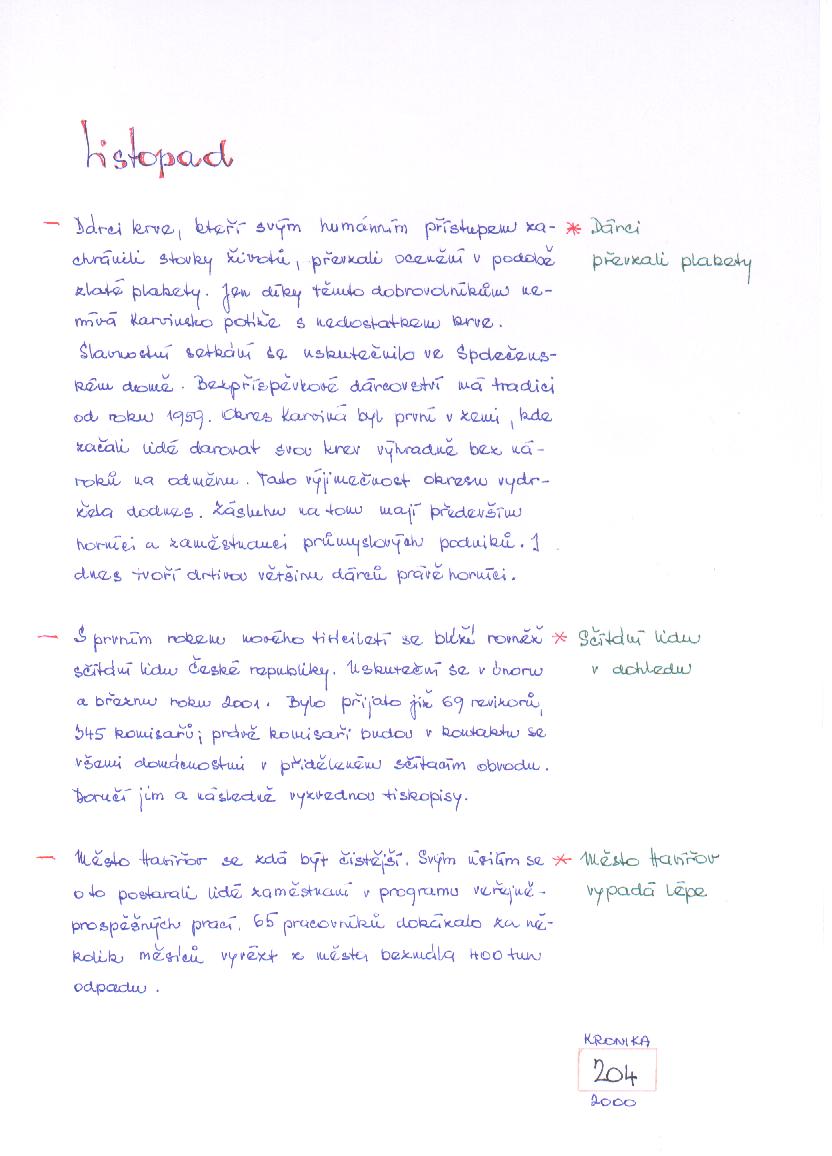 Listopad
– Dárci krve, kteří svým humánním přístupem za- * Dárci
chránili stovky životů, převzali ocenění v podobě převzali plakety
zlaté plakety. Jen díky těmto dobrovolníkům ne-
mívá Karvinsko potíže s nedostatkem krve.
Slavnostní setkání se uskutečnilo ve Společens-
kém domě. Bezpříspěvkové dárcovství má tradici
od roku 1959. Okres Karviná byl první v zemi, kde
začali lidé darovat svou krev výhradně bez ná-
roků na odměnu. Tato výjimečnost okresu vydr-
žela dodnes. Zásluhu na tom mají především
horníci a zaměstnanci průmyslových podniků. I
dnes tvoří drtivou většinu dárců právě horníci.
– S prvním rokem nového tisíciletí se blíží rovněž * Sčítání lidu
sčítání lidu České republiky. Uskuteční se v únoru v dohledu
a březnu roku 2001. Bylo přijato již 69 revizorů,
545 komisařů; právě komisaři budou v kontaktu se
všemi domácnostmi v přiděleném sčítacím obvodu.
Doručí jim a následně vyzvednou tiskopisy.
– Město Havířov se zdá být čistější. Svým úsilím se * Město Havířov
o to postarali lidé zaměstnaní v programu veřejně- vypadá lépe
prospěšných prací. 65 pracovníků dokázalo za ně-
kolik měsíců vyvézt z města bezmála 400 tun
odpadu.
KRONIKA
204
2000